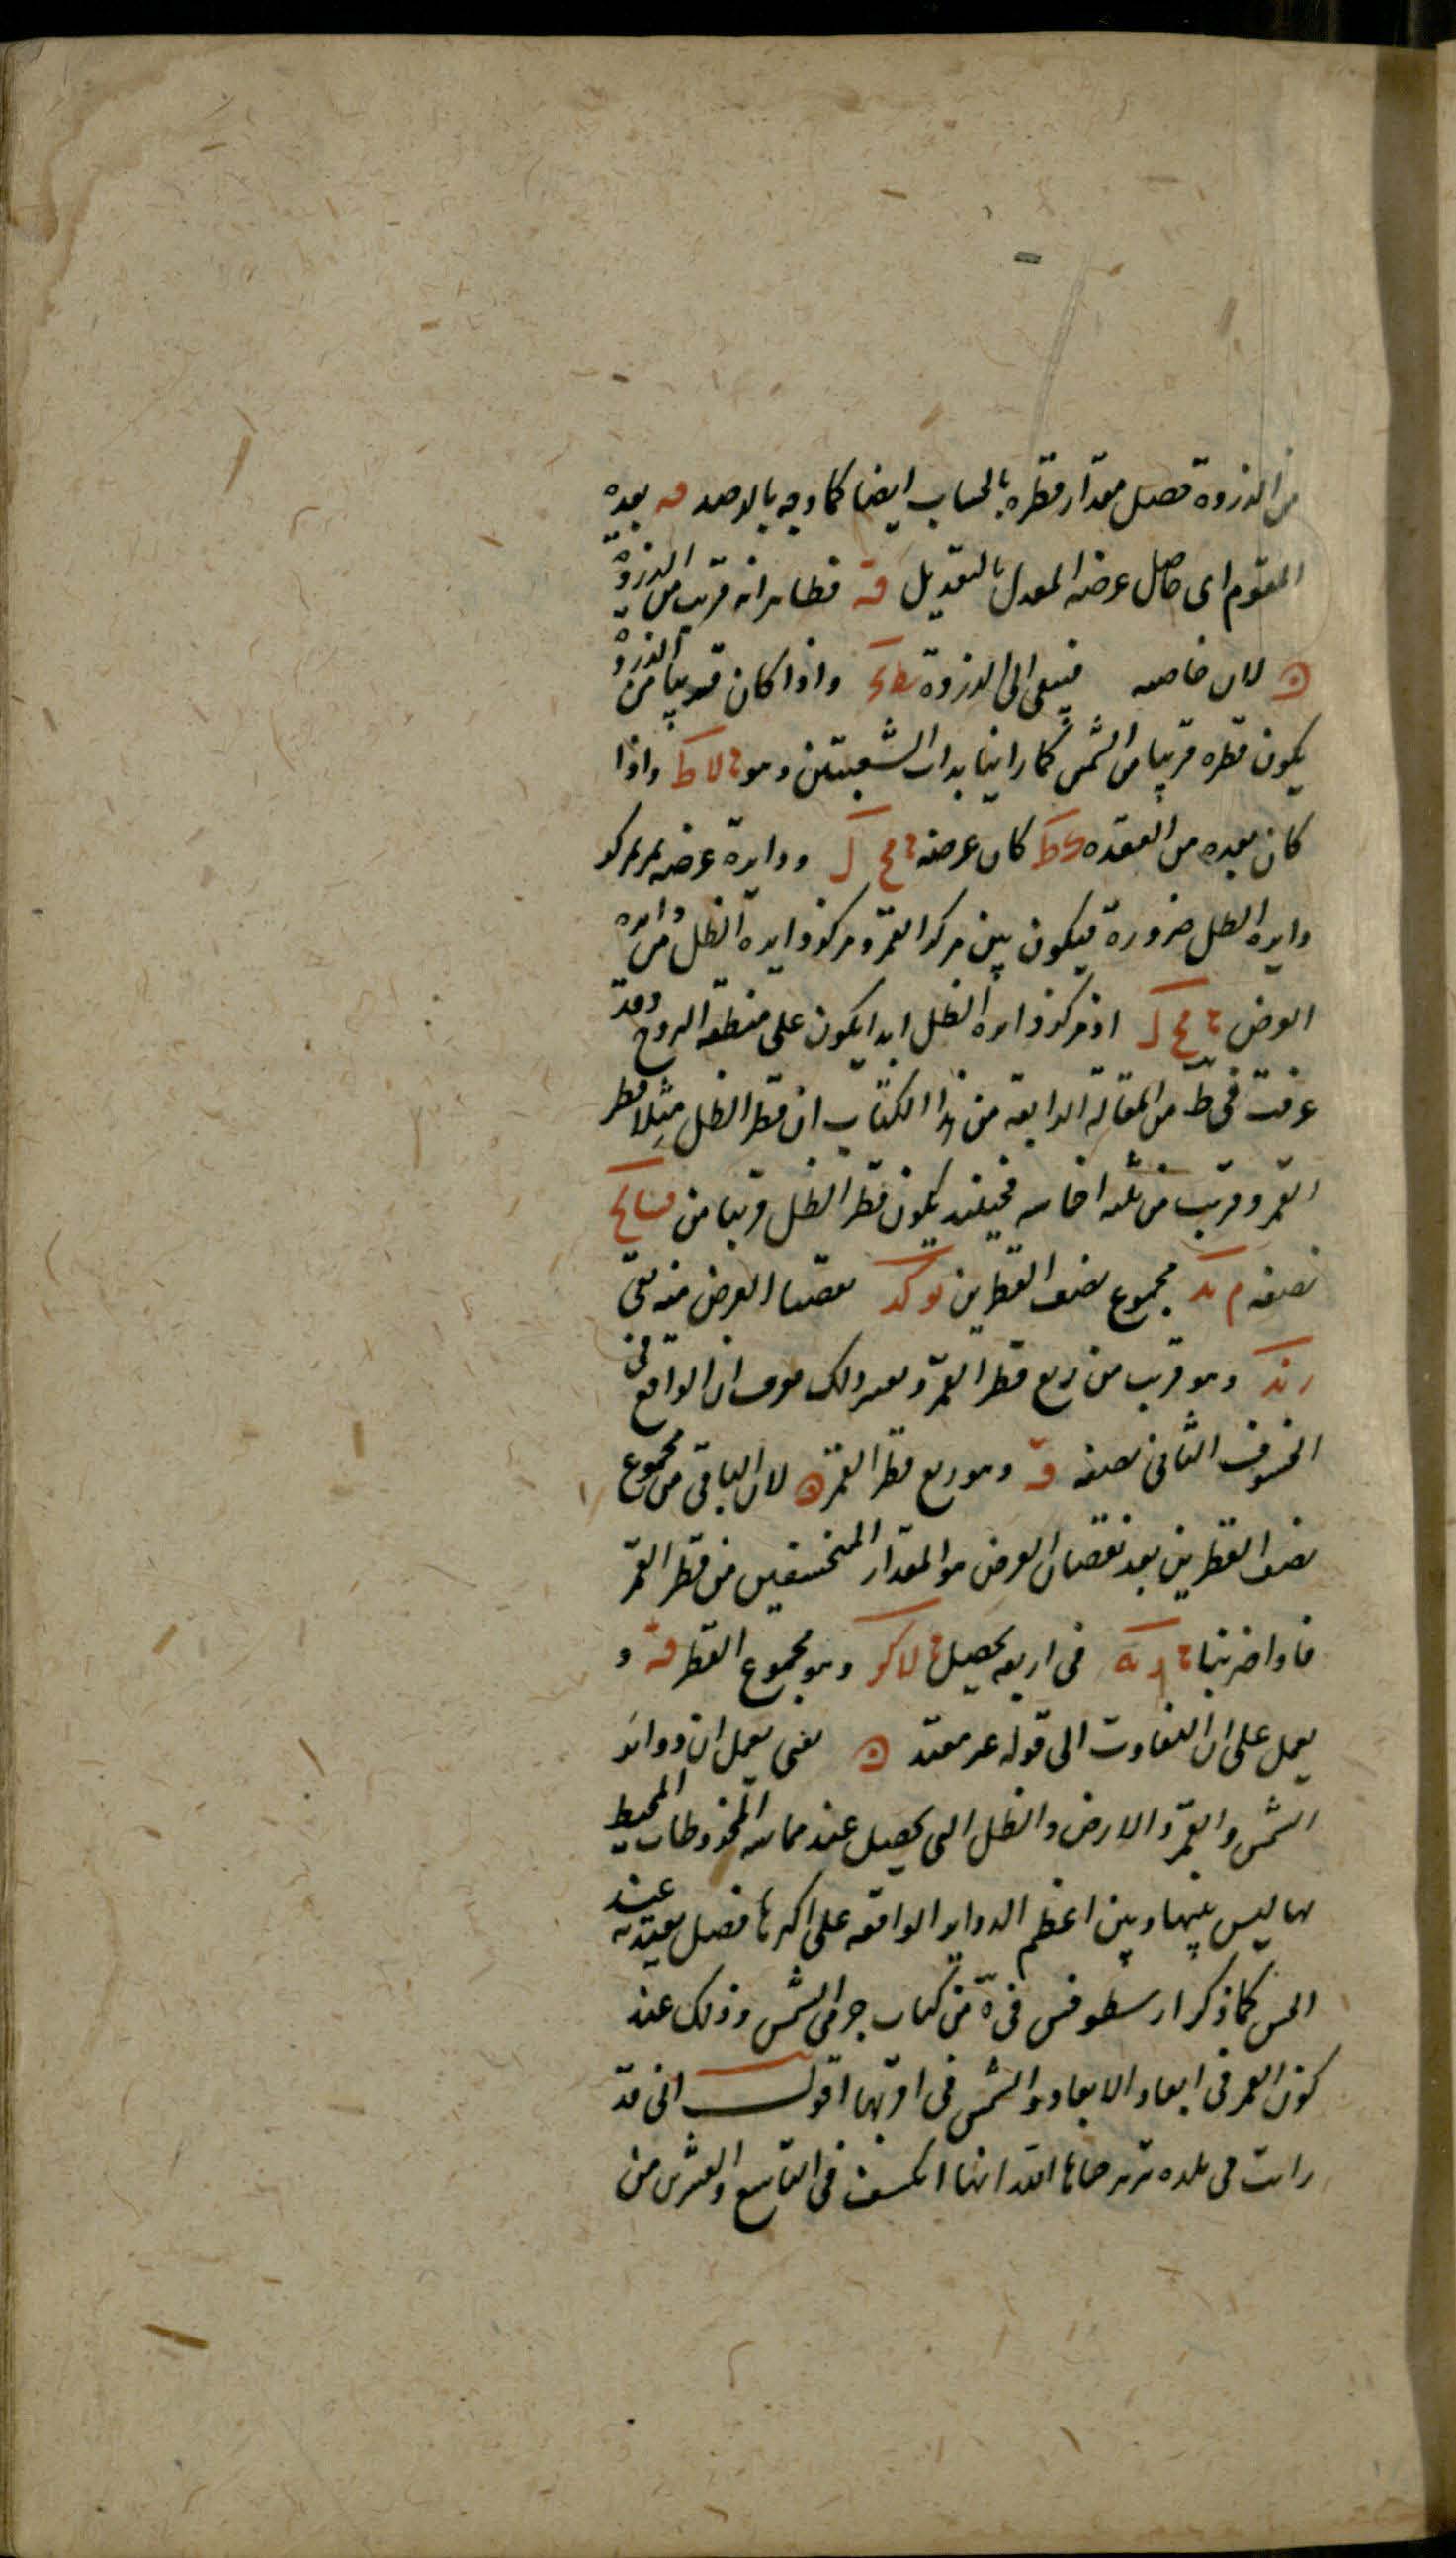 من الذروة فصل مقدار قطره بالحساب ايضا كما وجد بالرصد قه بعده
المقوم اى حاصل عرضه المعدل بالتعديل قه فظاهر انه قريب من الذروة
لان خاصته فيبقى الى الذروة واذا كان قريبا من الذروة
يكون قطره قريبا من الشمس كما راينا بذات الشعبتين وهو ء لا ك واذا
كان بعده من العقدة ط ك كان عرضه ء مح ل ودايرة عرضه تمر بمركز
دايرة الظل ضرورة فيكون بين مركز القمر ومركز دايرة الظل من دايرة
العرض ء مح ل اذ مركز دايرة الظل ابدا يكون على منطقة البروج وقد
عرفت فى ط من المقالة الرابعة من هذا الكتاب ان قطر الظل مثلا قطر
القمر وقريب من ثلثة اخماسه فحينئذ يكون قطر الظل قريبا من
نصفه م ند مجموع نصف القطرين نو كد نقصنا العرض منه بقى
ز ند وهو قريب من ربع قطر القمر وبغير ذلك عرف ان الواقع فى
الخسوف الثانى نصفه قه وهو ربع قطر القمر لان الباقى من مجموع
نصف القطرين بعد نقصان العرض هو المقدار المنخسفين من قطر القمر
فاذا ضربنا فى اربعة يحصل ء لا كو وهو مجموع القطر قه و
يعمل على ان التفاوت الى قوله غير معتد يعنى يعمل ان دوائر
الشمس والقمر والارض والظل التى يحصل عند مماسه المخروطات المحيط
بها ليس بينها وبين اعظم الدواير الواقعه على اكرها فصل يعتد به عند
الحس كما ذكر ارسطوخس فى ه من كتاب جرمى الشمس وذلك عند
كون القمر فى ابعاد الابعاد والشمس فى اقربها اقول انى قد
رايت فى بلدة تبريز حماها الله انها انكسف فى التاسع والعشرين من